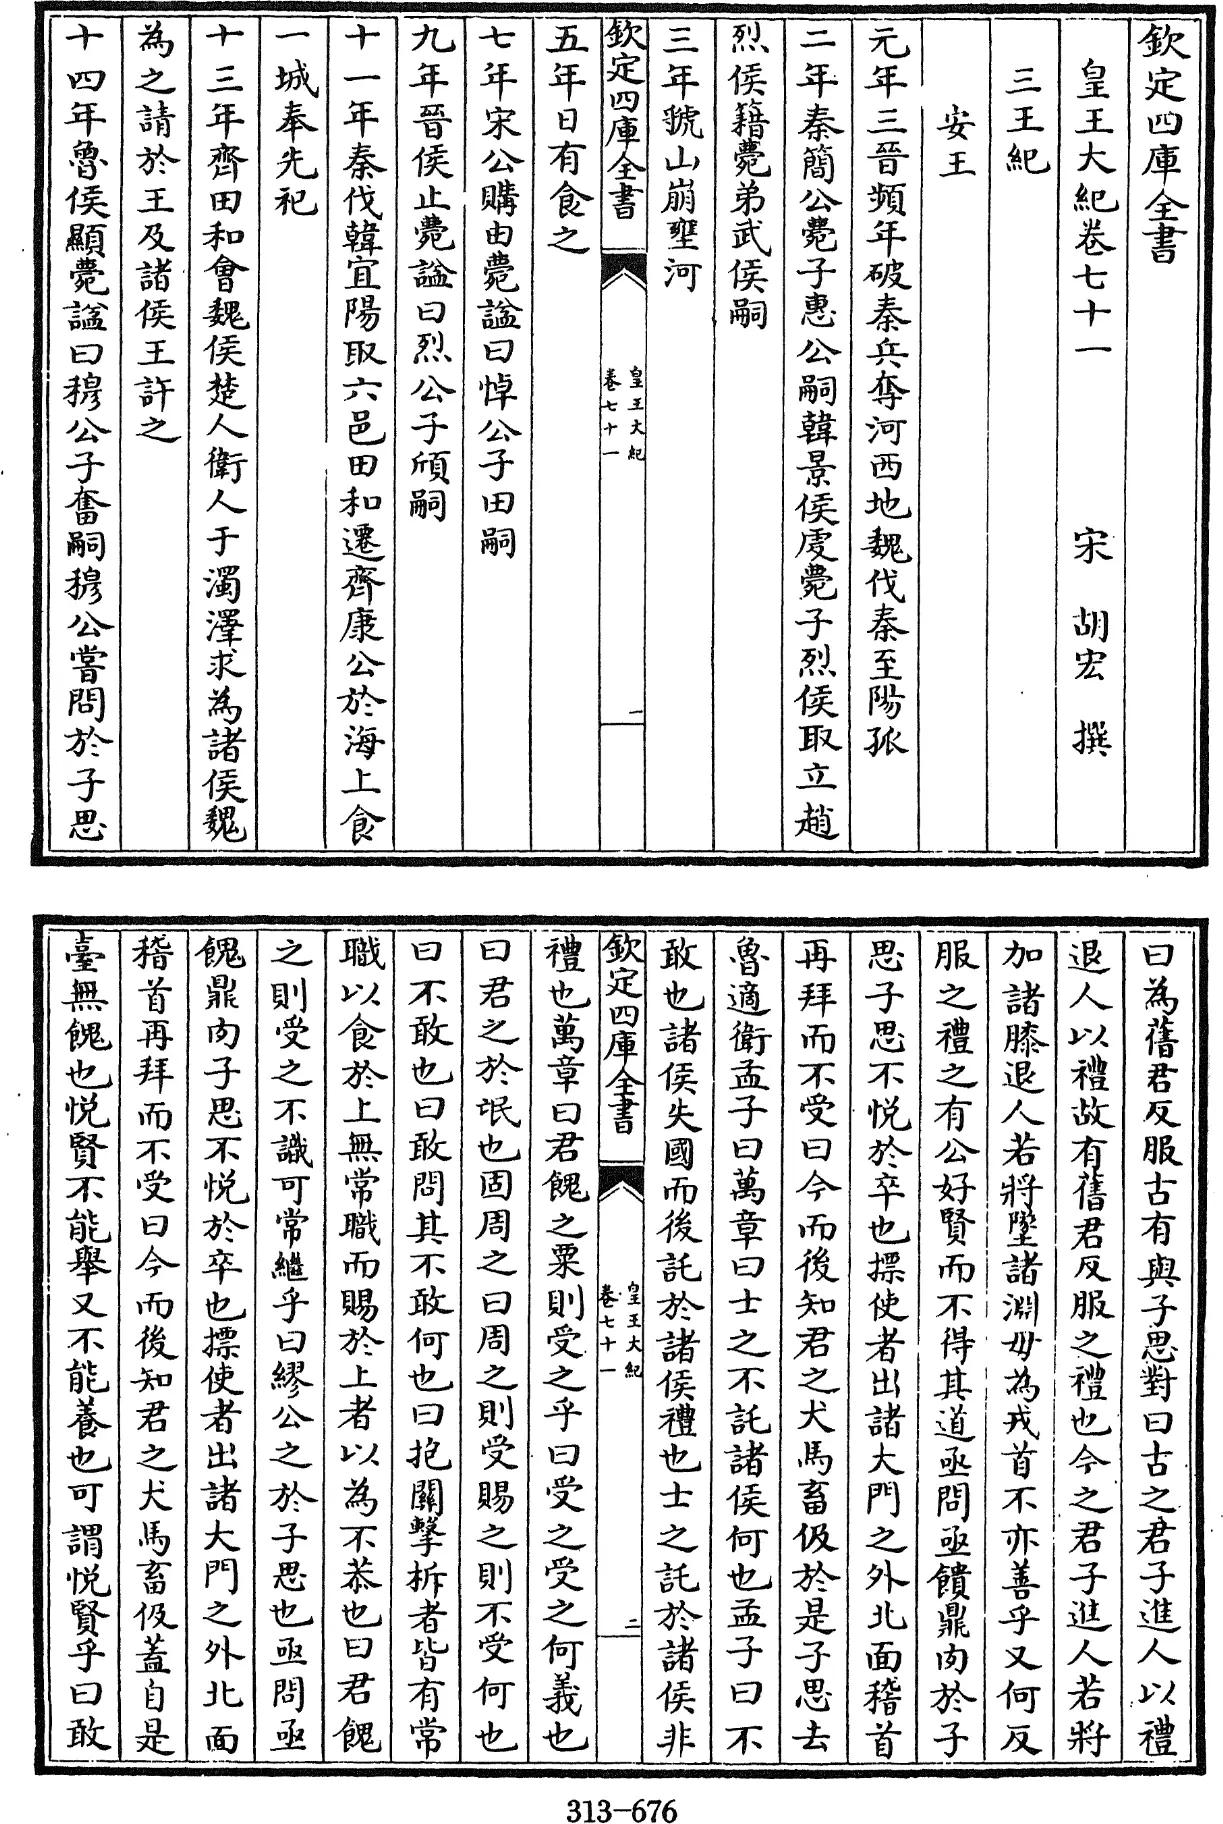 欽定四庫全書
皇王大紀卷七十一　宋　胡宏　撰
三王紀
安王
元年三晉頻年破秦兵奪河西地魏伐秦至陽狐
二年秦簡公薨子惠公嗣韓景侯虔薨子烈侯取立趙
烈侯籍薨弟武侯嗣
三年虢山崩壅河
欽定四庫全書
皇王大紀
卷七十一
一
五年日有食之
七年宋公購由薨諡曰悼公子田嗣
九年晉侯止薨諡曰烈公子頎嗣
十一年秦伐韓宜陽取六邑田和遷齊康公於海上食
一城奉先祀
十三年齊田和會魏侯楚人衛人于濁澤求為諸侯魏
為之請於王及諸侯王許之
十四年魯侯顯薨諡曰穆公子奮嗣穆公嘗問於子思
曰為舊君反服古有與子思對曰古之君子進人以禮
退人以禮故有舊君反服之禮也今之君子進人若將
加諸膝退人若將墜諸淵毋為戎首不亦善乎又何反
服之禮之有公好賢而不得其道亟問亟饋鼎肉於子
思子思不悅於卒也摽使者出諸大門之外北面稽首
再拜而不受曰今而後知君之犬馬畜伋於是子思去
魯適衛孟子曰萬章曰士之不託諸侯何也孟子曰不
敢也諸侯失國而後託於諸侯禮也士之託於諸侯非
欽定四庫全書
皇王大紀
卷七十一
二
禮也萬章曰君餽之粟則受之乎曰受之受之何義也
曰君之於氓也固周之曰周之則受賜之則不受何也
曰不敢也曰敢問其不敢何也曰抱關擊柝者皆有常
職以食於上無常職而賜於上者以為不恭也曰君餽
之則受之不識可常繼乎曰繆公之於子思也亟問亟
餽鼎肉子思不悅於卒也摽使者出諸大門之外北面
稽首再拜而不受曰今而後知君之犬馬畜伋蓋自是
臺無餽也悅賢不能舉又不能養也可謂悅賢乎曰敢
313-676